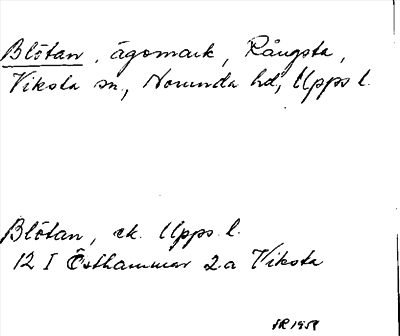 Blötan, ägomark, Rångsta,
Viksta sn, Norunda hd, Upps l.
Blötan, ek. Upps. l.
12 I Östhammar 2a Viksta
SR 1958